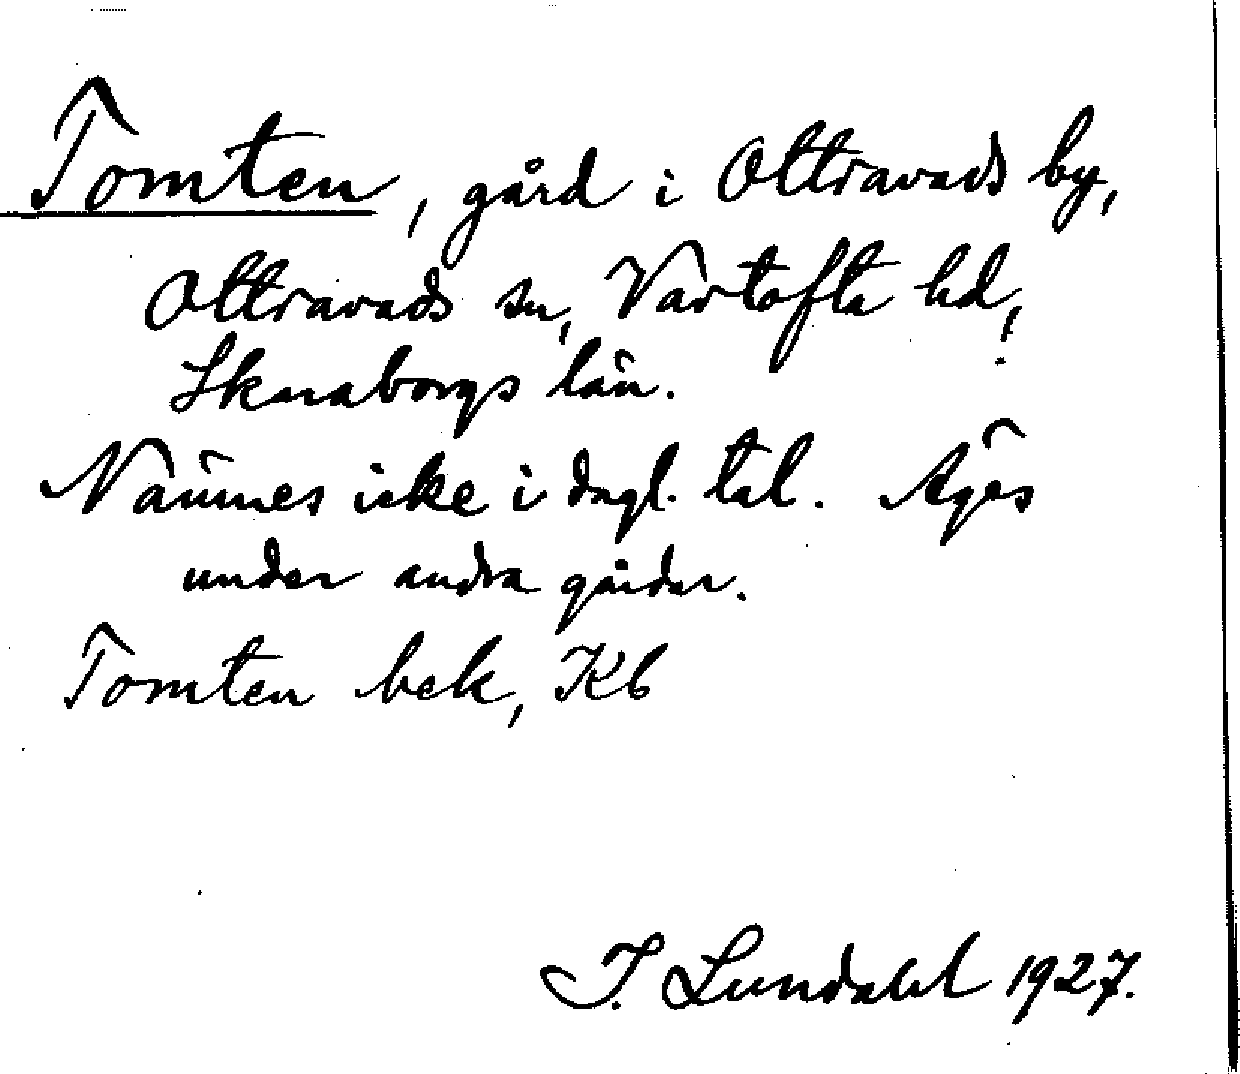 Tomten, gård i Ottravads by,
Ottravads sn, Vartofta hd,
Skaraborgs län.
Nämnes icke i dagl. tal. Äges
under andra gårdar.
Tomten bek, Kb
I. Lundahl 1927.